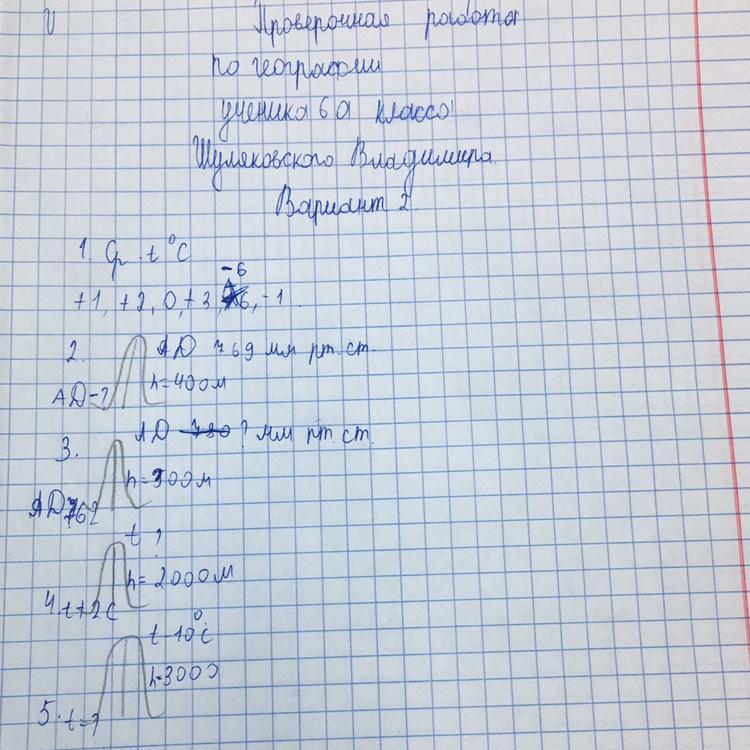 Проверочная работа
по географии
ученика 6 А класса
Шуляковского Владимира
Вариант 2.
1. Ср. t °C
-6
+1, +2, 0, +3, , -1.
2. АД 769 мм рт. ст.
h=400м
АД-?
АД ? мм рт. ст.
3.
h=300м
АД 762
t ?
h= 2000м
4. t+2С
t-10°С
h=3000
5. t=?